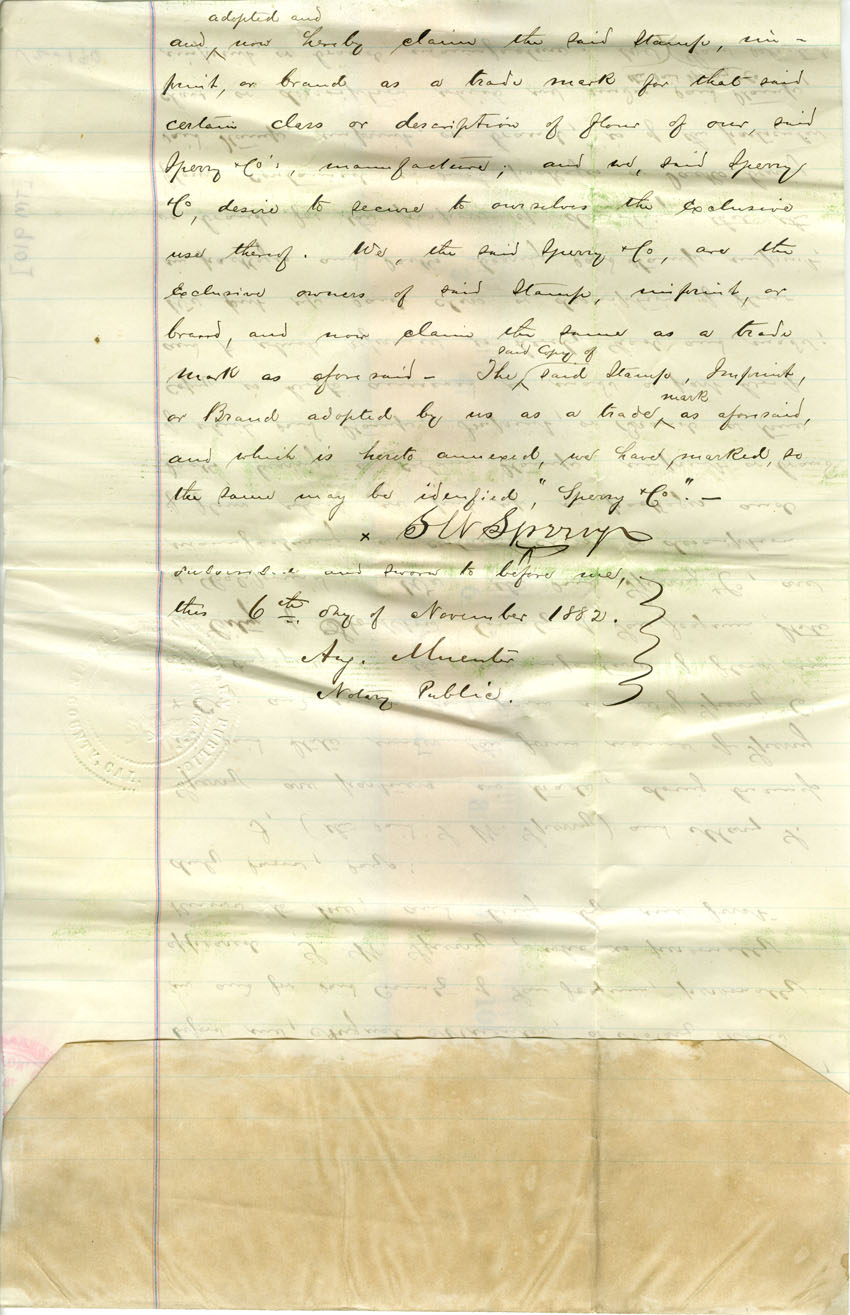 adopted and
and now hereby claim the said Stamp, im-
print, or brand as a trade mark for that said
certain class or description of flour of our, said
Sperry & Co's, manufacture; and we, said Sperry
& Co, desire to secure to ourselves the exclusive
use thereof. We, the said Sperry & Co, are the
exclusive owners of said Stamp, imprint, or
brand, and now claim the same as a trade
said Copy of
mark as aforesaid - The said Stamp, Imprint,
mark
or Brand adopted by us as a trade, as aforesaid,
and which is hereto annexed, we have marked, so
the same may be idenfied, "Sperry & Co". -
x S W Sperry
and sworn to before me,
this 6th. day of November 1882.
Aug. Muenter
Notary Public.
PUBLIC
COUNTY, CAL.